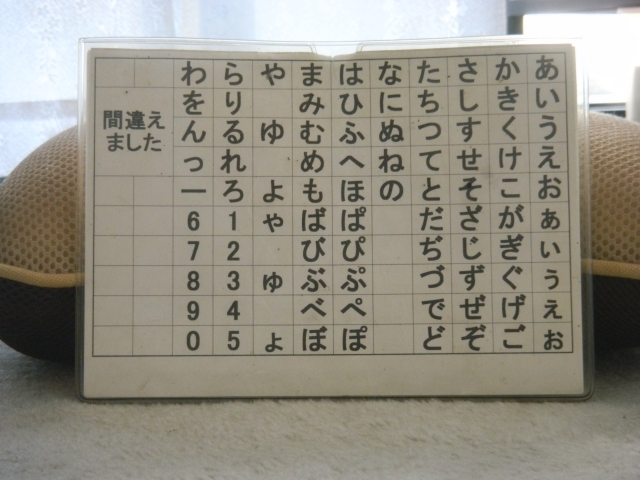 あいうえおぁぃぅぇぉ
かきくけこがぎぐげご
さしすせそざじずぜぞ
たちつてとだぢづでど
なにぬねの
はひふへほぱぴぷぺぽ
まみむめもばびぶべぼ
やゆよゃゅょ
らりるれろ12345
わをんっー67890
間違え
ました